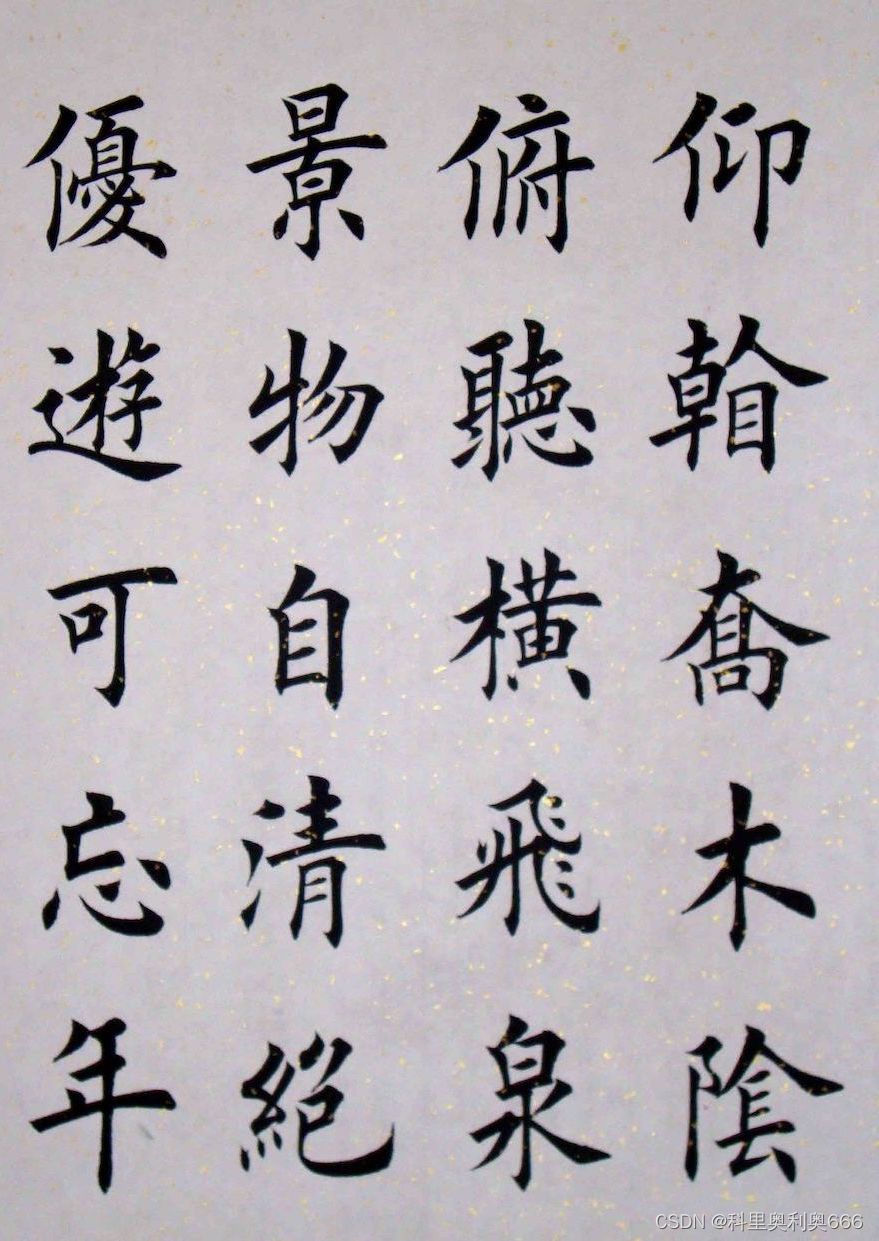 仰看喬木陰
俯聽橫飛泉
景物自清絕
優遊可忘年
CSDN @科里奥利奥666